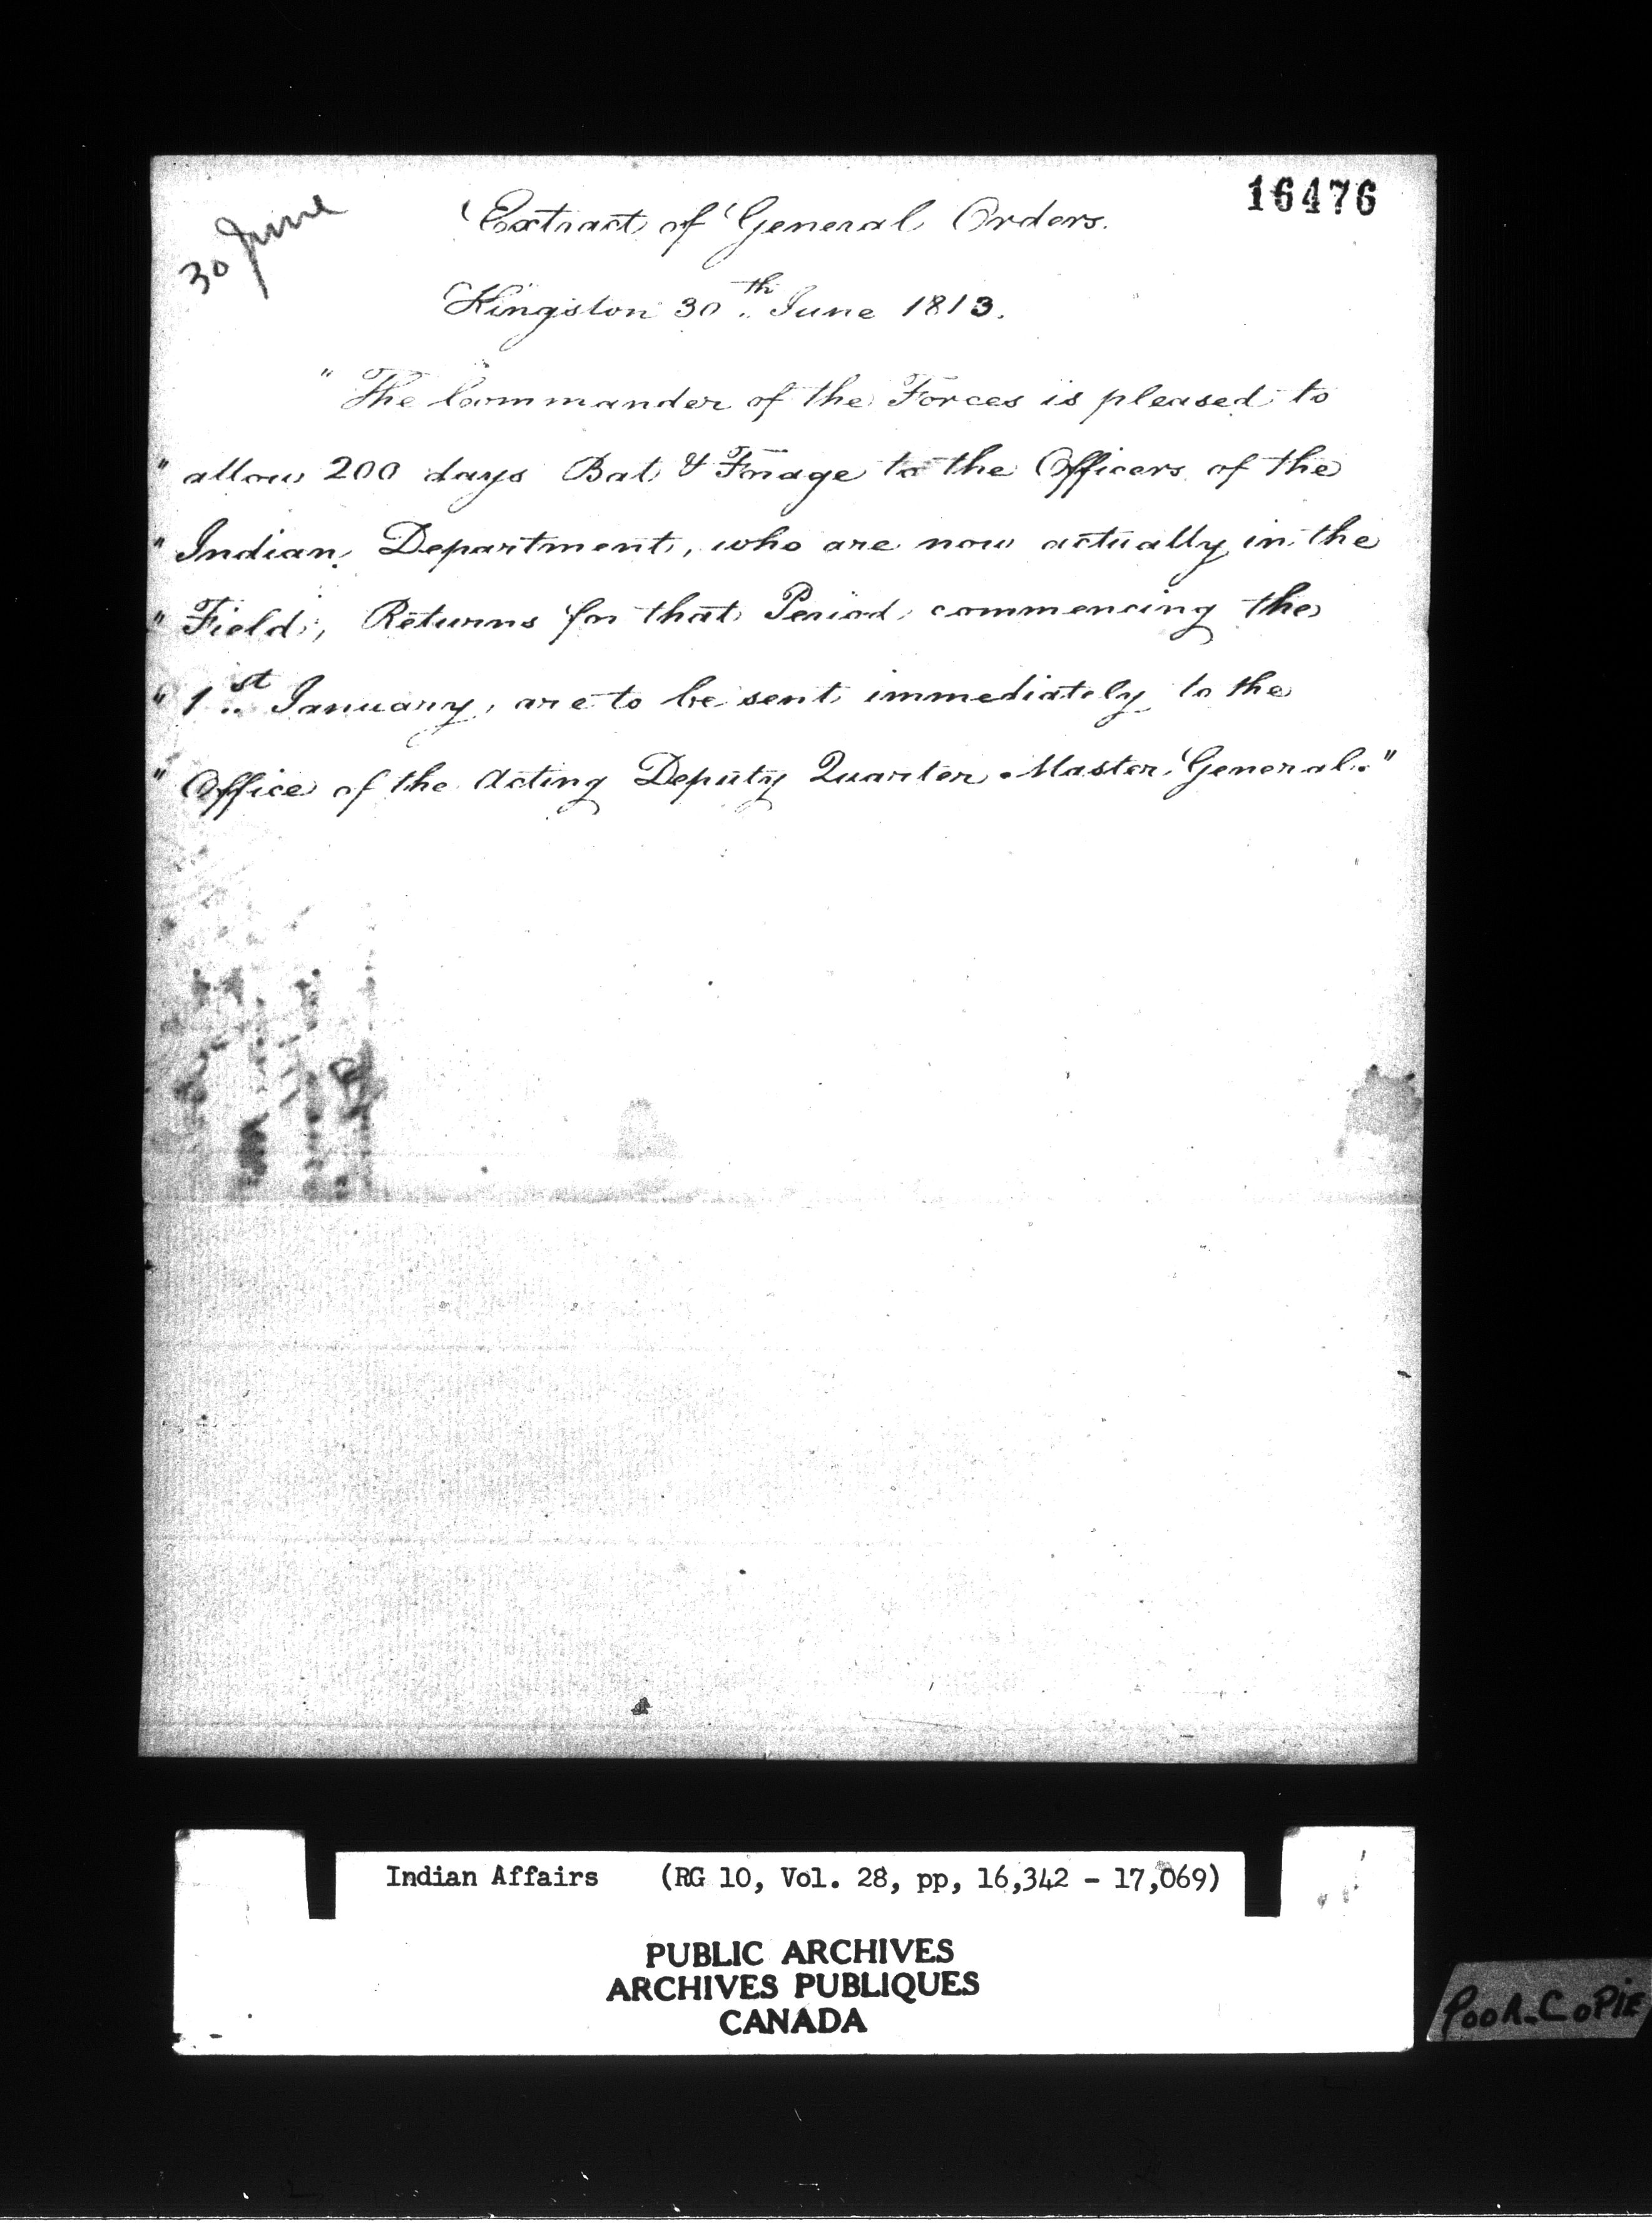 16476
30 June
Extract of General Orders.
Kingston 30th June 1813.
" The Commander of the Forces is pleased to
" allow 200 days Bat & Forage to the Officers of the
" Indian Department, who are now actually in the
" Field, Returns for that Period commencing the
" 1st January, are to be sent immediately to the
" Office of the Acting Deputy Quarter Master General."
Indian Affairs (RG 10, Vol. 28, pp, 16,342 - 17,069)
PUBLIC ARCHIVES
ARCHIVES PUBLIQUES
CANADA
POOR COPIE